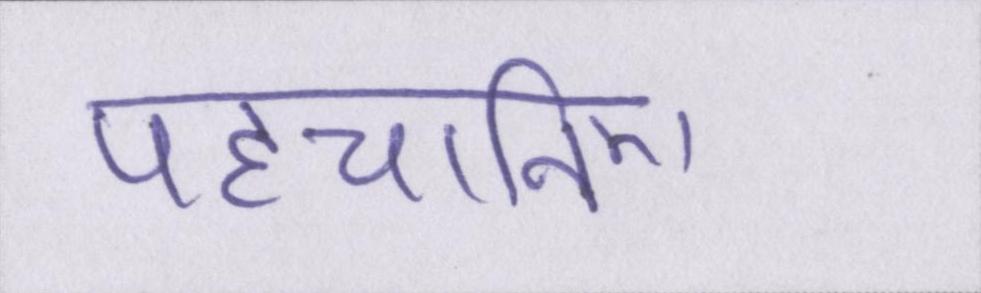 पहचानिए